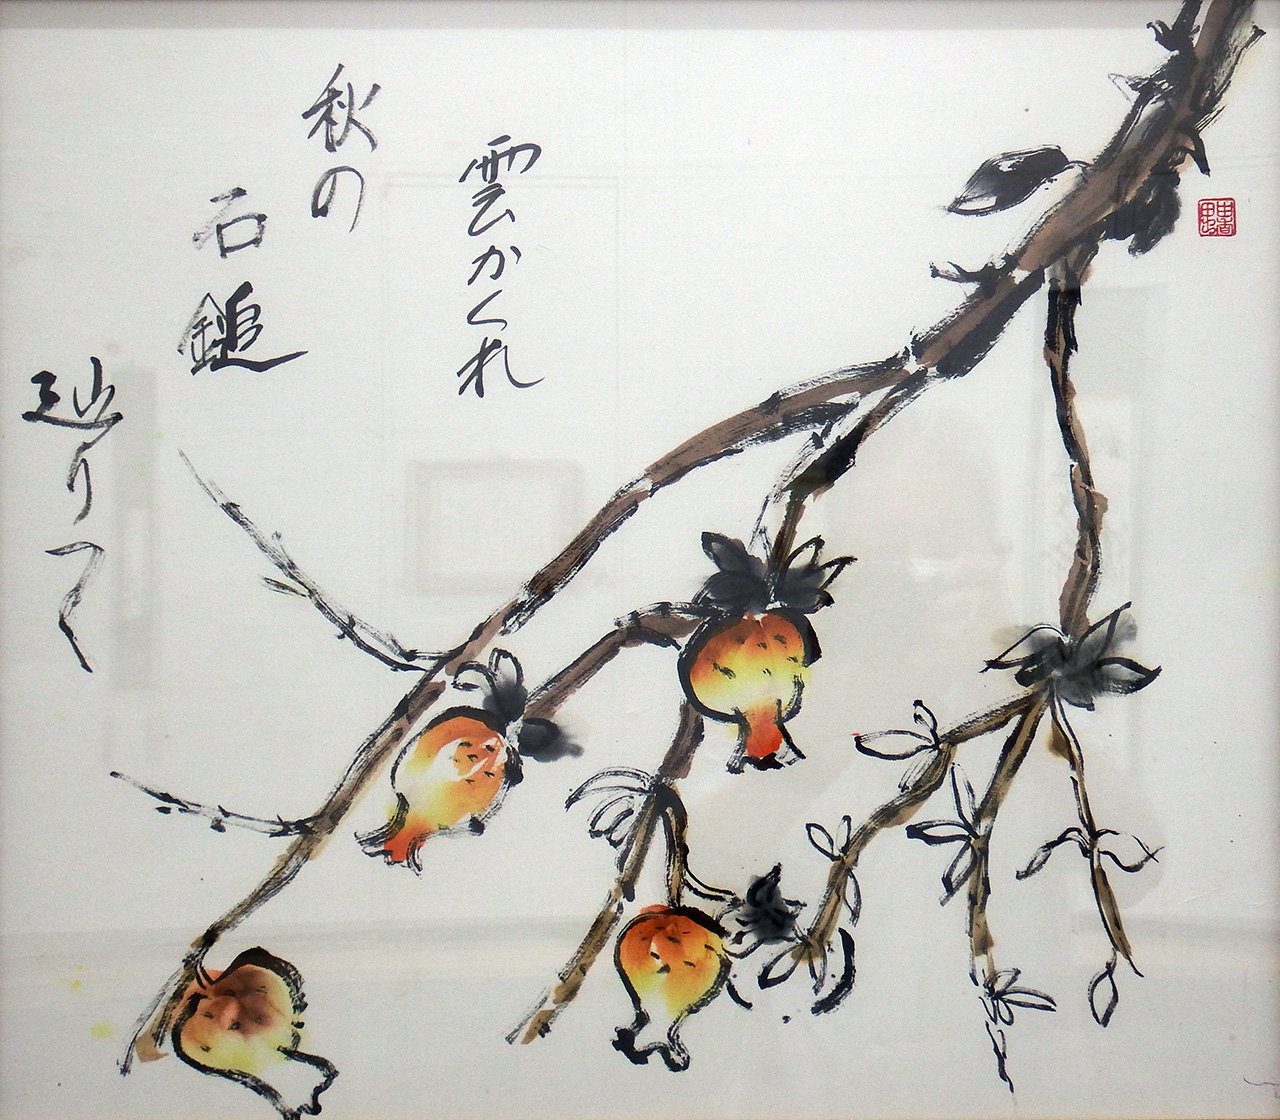 雲かくれ
秋の
石鎚
辿りて